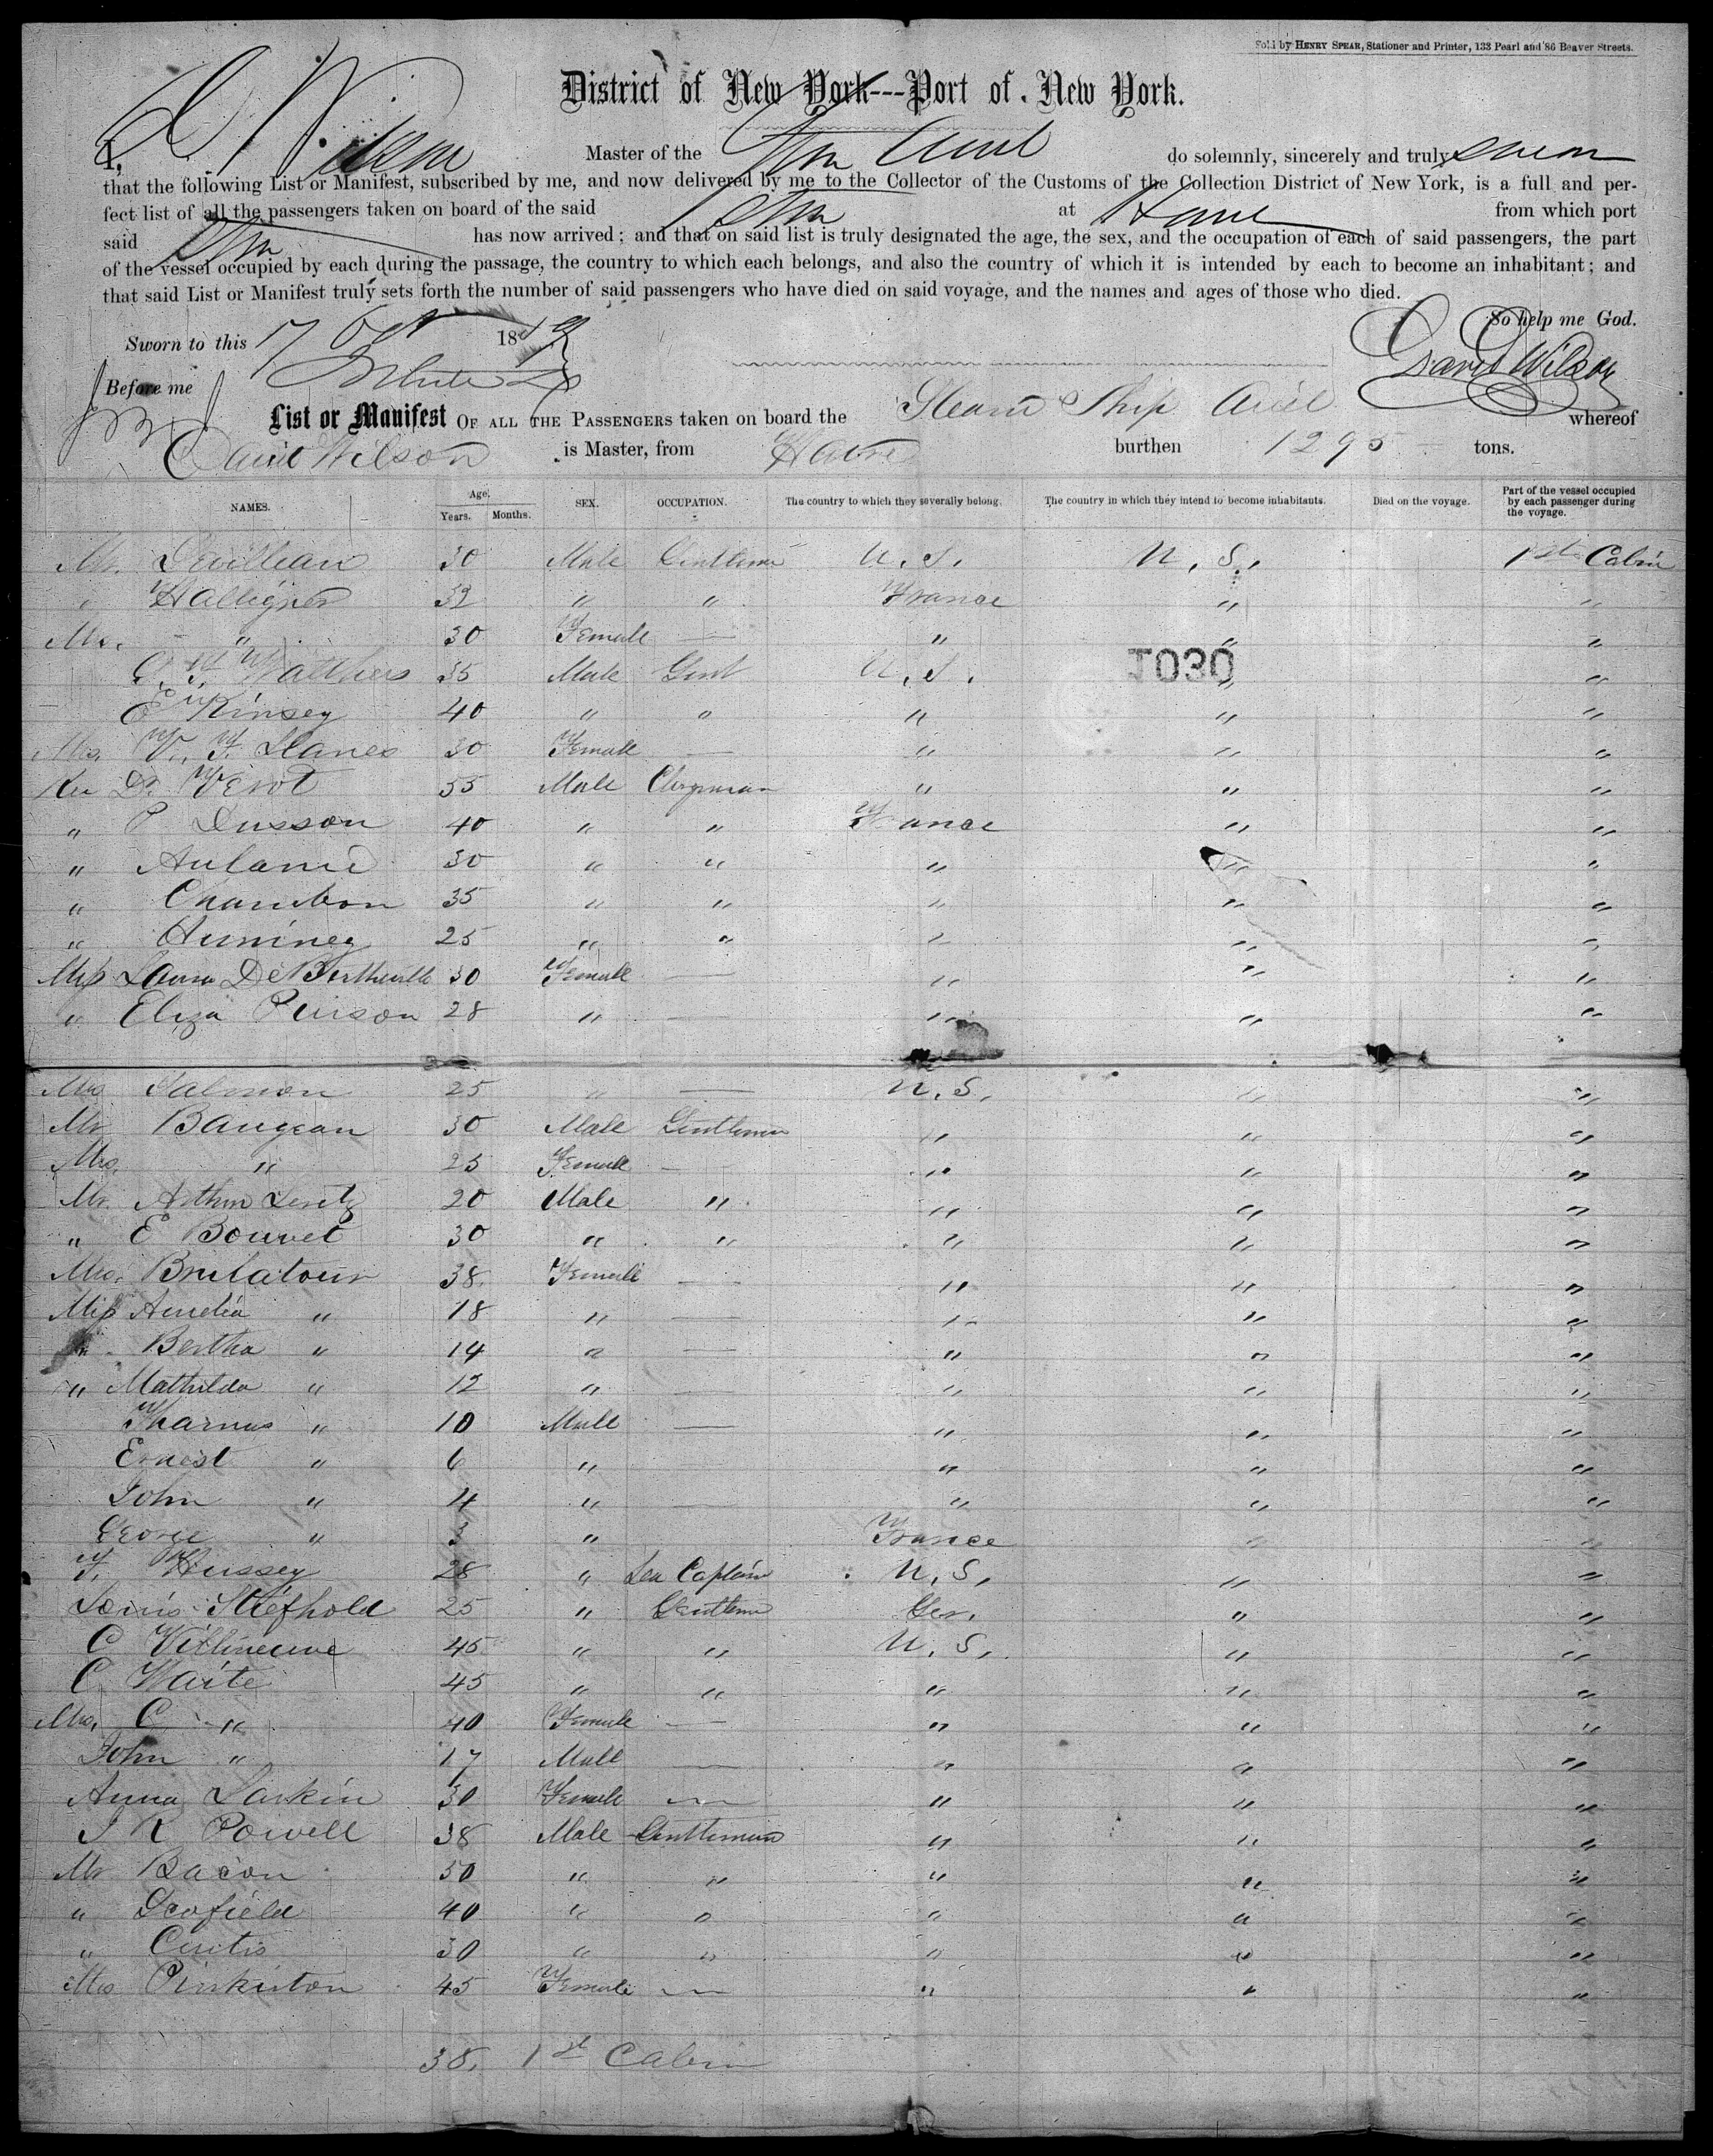 Sold by HENRY SPEAR, Stationer and Printer, 133 Pearl and 86 Beaver Streets.
District of New York---Port of New York.
I, D Wilson Master of the Stm Ariel do solemnly, sincerely and truly swear
that the following List or Manifest, subscribed by me, and now delivered by me to the Collector of the Customs of the Collection District of New York, is a full and per-
fect list of all the passengers taken on board of the said Stm at Havre from which port
said Stm has now arrived; and that on said list is truly designated the age, the sex, and the occupation of each of said passengers, the part
of the vessel occupied by each during the passage, the country to which each belongs, and also the country of which it is intended by each to become an inhabitant; and
that said List or Manifest truly sets forth the number of said passengers who have died on said voyage, and the names and ages of those who died.
So help me God.
Sworn to this 17 Oct 1859
David Wilson
Before me
List or Manifest OF ALL THE PASSENGERS taken on board the Steam Ship Ariel whereof
David Wilson is Master, from Havre burthen 1295 tons.
NAMES. Age. Years. Months. SEX. OCCUPATION. The country to which they severally belong. The country in which they intend to become inhabitants. Died on the voyage. Part of the vessel occupied by each passenger during the voyage.
Mr. 30 Male Gentleman U.S. U.S. 1st Cabin
" 32 " " France " "
" 30 Female — " " "
Matthews 35 Male Gent U.S. " "
1030
E Kinsey 40 " " " " "
Mrs. V. F. Llanes 30 Female — " " "
Rev Dr. Verot 55 Male Clergyman " " "
" P Dusson 40 " " France " "
" Aulanie 30 " " " " "
" Chambon 35 " " " " "
" Huminey 25 " " " " "
Miss Laura De Bertheville 30 Female — " " "
" Eliza Pierson 28 " — " " "
Mrs Salmon 25 " — U.S. " "
Mr Baugean 30 Male Gentleman " " "
Mrs. " 25 Female — " " "
Mr. Arthur Lentz 20 Male " " " "
" E Bouvet 30 " " " " "
Mrs. Brulatour 38 Female — " " "
Miss Amelia " 18 " — " " "
" Bertha " 14 " — " " "
" Mathilda " 12 " — " " "
Thomas " 10 Male — " " "
Ernest " 6 " — " " "
John " 4 " — " " "
George " 3 " France " "
F. Hussey 28 " Sea Captain U.S. " "
Louis Stiefhold 25 " Gentleman Ger. " "
C Villineuve 45 " " U.S. " "
C. Waite 45 " " " " "
Mrs. C " 40 Female — " " "
John " 17 Male — " " "
Anna Larkin 30 Female — " " "
J R Powell 38 Male Gentleman " " "
Mr Bacon 50 " " " " "
" Scofield 40 " " " " "
" Curtis 30 " " " " "
Mrs Pinkinton 45 Female — " " "
38. 1st Cabin